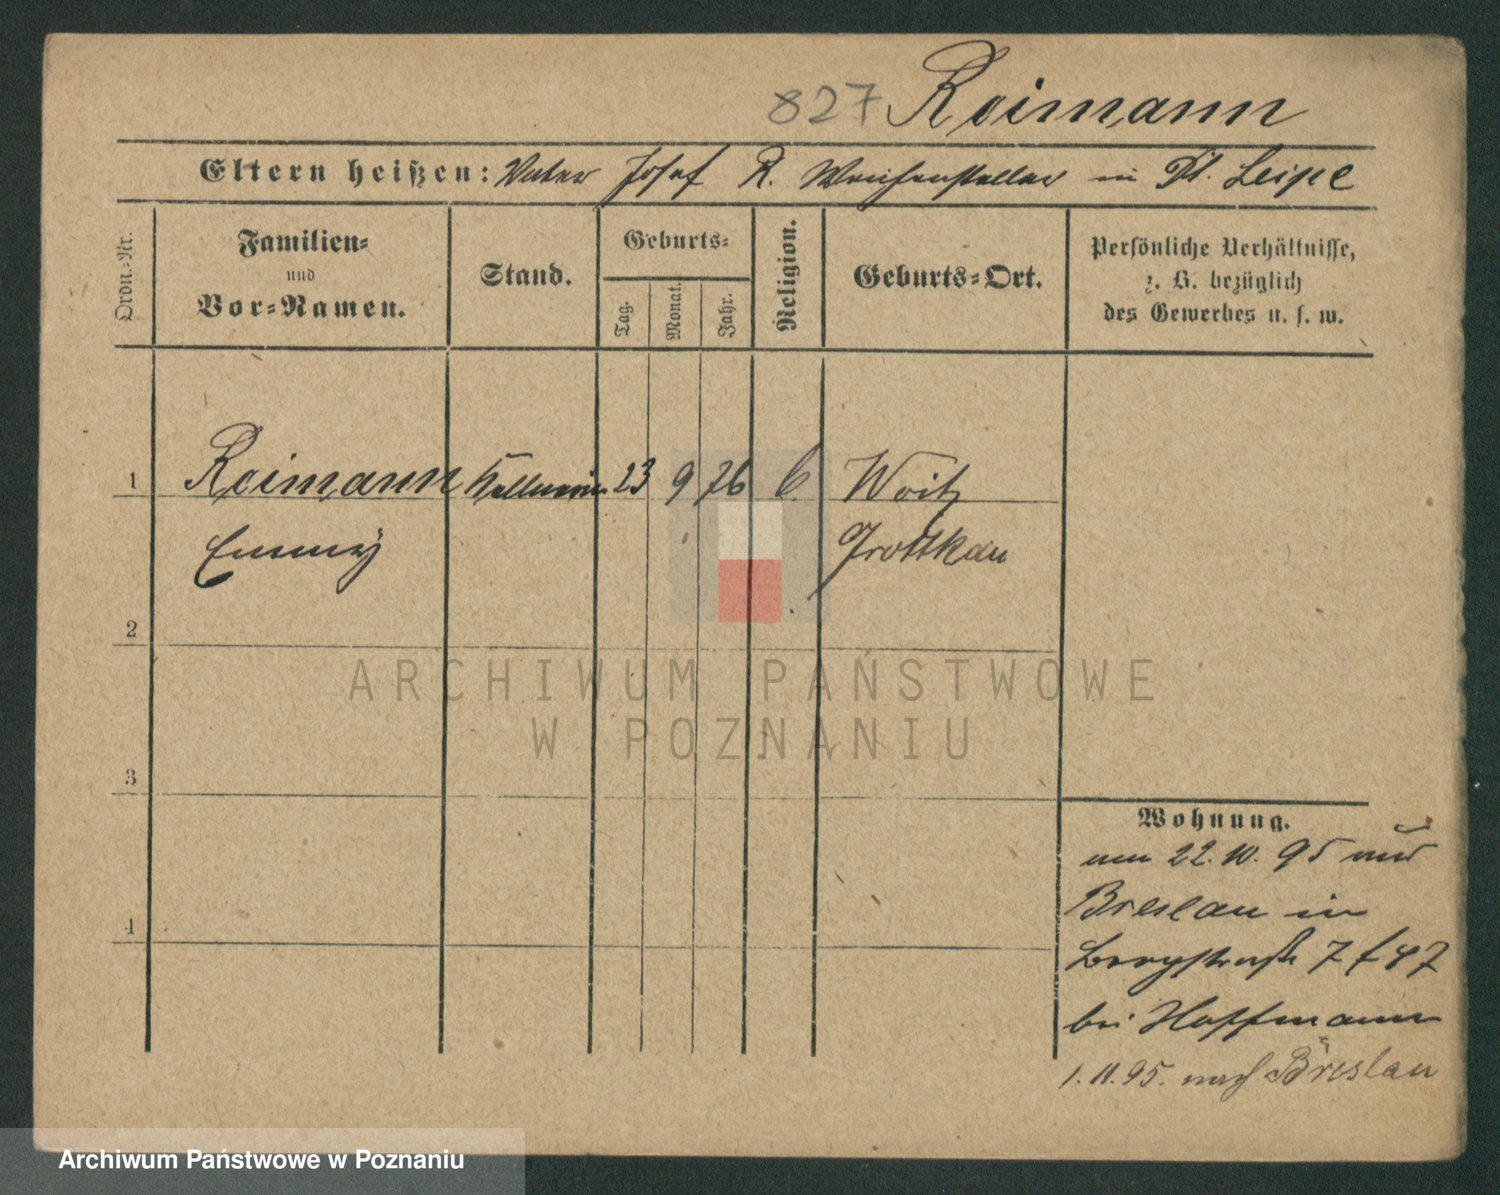 827 Reimann
Eltern heißen: Vater Josef R. Weichensteller in Dt. Leipe
Ordn.-Nr.
Familien-
und
Vor-Namen.
Stand.
Geburts-
Tag.
Monat.
Jahr.
Religion.
Geburts-Ort.
Persönliche Verhältnisse,
z. B. bezüglich
des Gewerbes u. s. w.
1 Reimann Kellnerin 23 9 76 C. Woitz
Emmy Grottkau
2
3
4
Wohnung.
am 22.10.95 aus
Breslau in
Bergstraße 7
bei Hoffmann
1.11.95. nach Breslau
ARCHIWUM PAŃSTWOWE
W POZNANIU
Archiwum Państwowe w Poznaniu